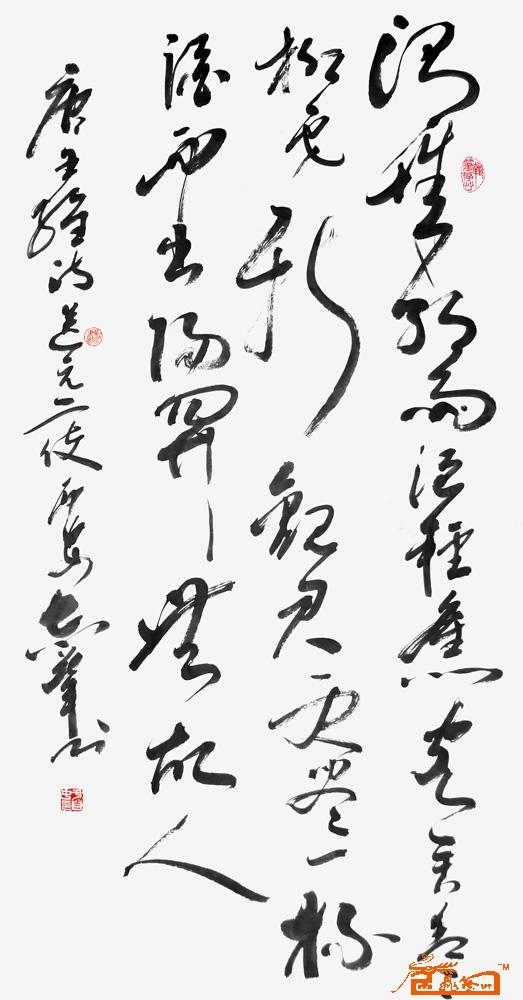 渭城朝雨浥輕塵客舍青
柳色新勸君更盡一杯
酒西出陽關無故人
唐王維詩送元二使西安志書